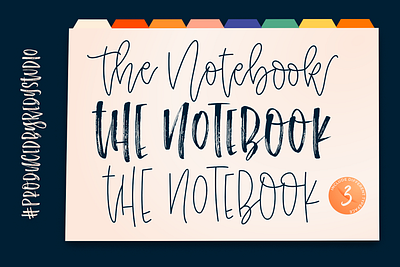 the Notebook
THE NOTEBOOK
THE NOTEBOOK
3
#PRODUCEDBYRIDYSTUDIO